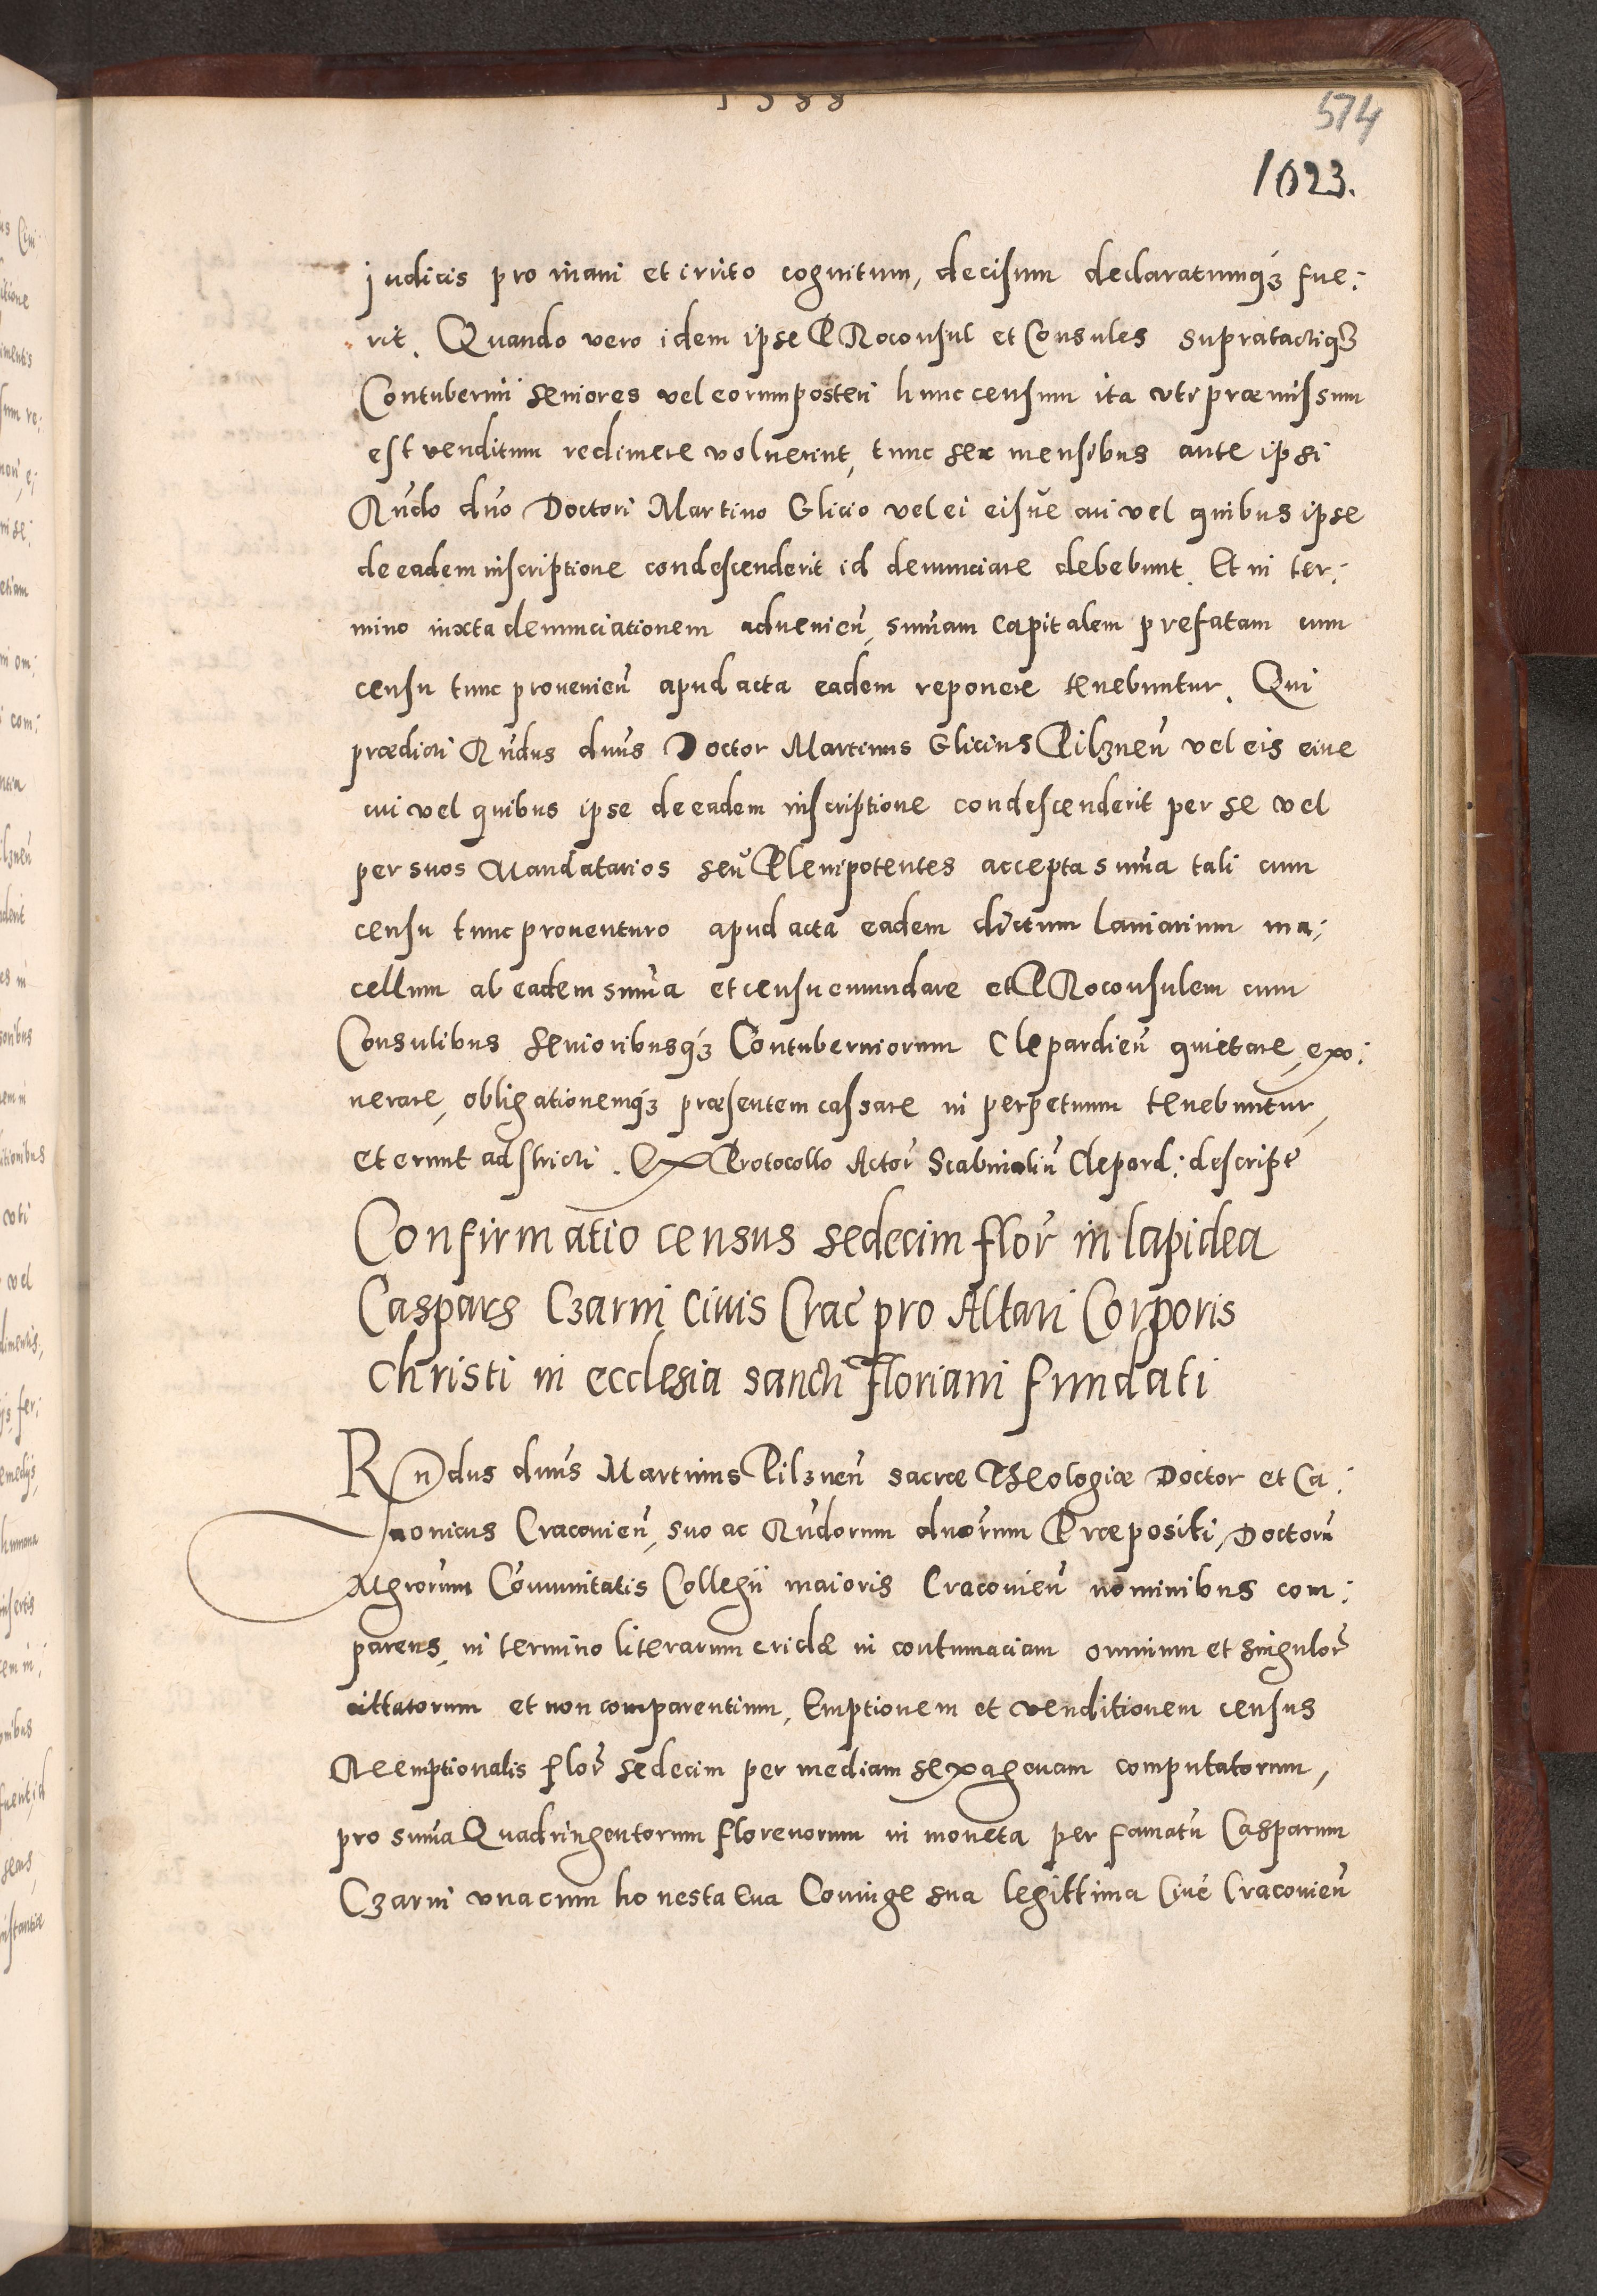 1588
574
1023.
judicis pro inani et irrito cognitum, decisum declaratumqȝ fue:
rit. Quando vero idem ipse PRoconsul et Consules supratactiqȝ
Contubernii seniores vel eorum posteri hunc censum ita uti præmissum
est venditum redimere voluerint, tunc sex mensibus ante ipsi
Rñdo dño Doctori Martino Glicio vel ei eisue cui vel quibus ipse
de eadem inscriptione condescenderit id denunciare debebunt. Et in ter:
mino iuxta denunciationem advenieñ, sum̃am capitalem prefatam cum
censu tunc provenieñ apud acta eadem reponere tenebuntur. Qui
prædicti Rñdus dñus Doctor Martinus Glicius Pilzneñ vel eis eiue
cui vel quibus ipse de eadem inscriptione condescenderit per se vel
per suos Mandatarios seu Plenipotentes accepta sum̃a tali cum
censu tunc prouenturo apud acta eadem dictum laniarium ma:
cellum ab eadem sum̃a et censu emundare et PRoconsulem cum
Consulibus Senioribusqȝ Contuberniorum Clepardieñ quietare, exo:
nerare, obligationemqȝ præsentem cassare in perpetuum tenebuntur,
et erunt adstricti. Ex Protocollo Actor̃ Scabinaliũ Clepard: descript̃
Confirmatio census sedecim flor̃ in lapidea
Caspars Czarni Ciuis Crac̃ pro Altari Corporis
Christi in ecclesia sancti Floriani fundati
Rñdus dñus Martinus Pilzneñ sacræ Theologiæ Doctor et Ca:
nonicus Cracouieñ, suo ac Rñdorum dñorum Præpositi, Doctorũ
Mgrorum Com̃unitatis Collegii maioris Cracouieñ nominibus com:
parens, in termino literarum cridæ in contumaciam omnium et singulor̃
cittatorum et non comparentium, Emptionem et venditionem census
Reemptionalis flor̃ sedecim per mediam sexagenam computatorum,
pro sum̃a Quadringentorum florenorum in moneta per famatũ Casparum
Czarni una cum honesta Eua Coniuge sua legittima Ciue Cracouieñ